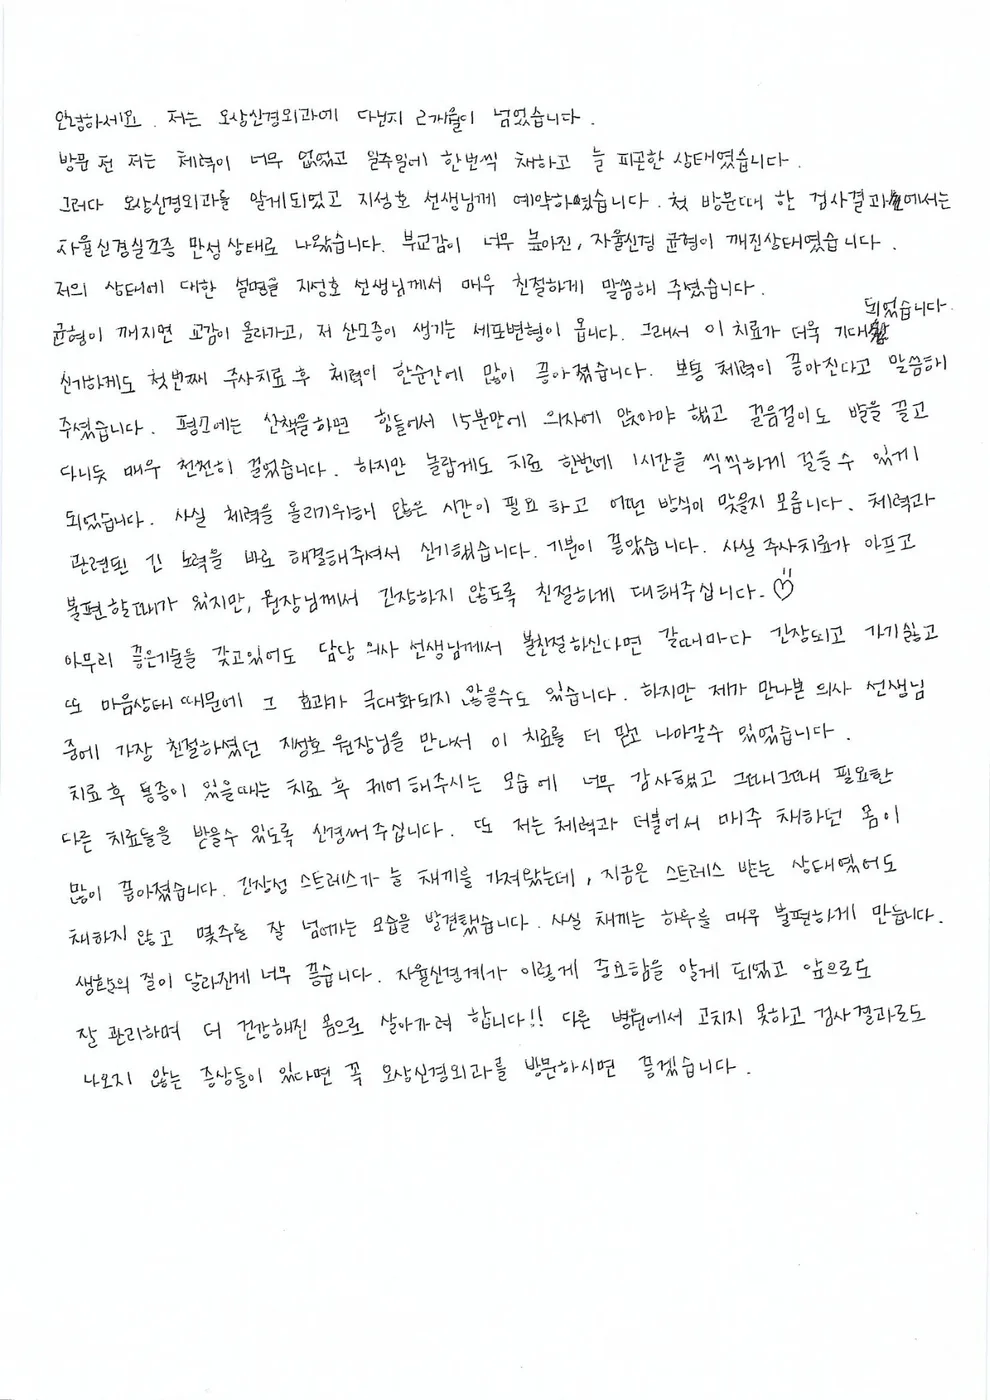 안녕하세요. 저는 오상신경외과에 다닌지 2개월이 넘었습니다.
방문 전 저는 체력이 너무 없었고 일주일에 한번씩 채하고 늘 피곤한 상태였습니다.
그러다 오상신경외과를 알게되었고 지성호 선생님께 예약하였습니다. 첫 방문때 한 검사결과에서는
자율신경실조증 만성상태로 나왔습니다. 부교감이 너무 높아진, 자율신경 균형이 깨진상태였습니다.
저의 상태에 대한 설명을 지성호 선생님께서 매우 친절하게 말씀해 주셨습니다.
균형이 깨지면 교감이 올라가고, 저 산소증이 생기는 세포변형이 옵니다. 그래서 이 치료가 더욱 기대되었습니다.
신기하게도 첫번째 주사치료 후 체력이 한순간에 많이 좋아졌습니다. 보통 체력이 좋아진다고 말씀해
주셨습니다. 평소에는 산책을하면 힘들어서 15분만에 의자에 앉아야 했고 걸음걸이도 발을 끌고
다니듯 매우 천천히 걸었습니다. 하지만 놀랍게도 치료 한번에 1시간을 씩씩하게 걸을수 있게
되었습니다. 사실 체력을 올리기위해 많은 시간이 필요 하고 어떤 방식이 맞을지 모릅니다. 체력과
관련된 긴 노력을 바로 해결해주셔서 신기했습니다. 기분이 좋았습니다. 사실 주사치료가 아프고
불편할때가 있지만, 원장님께서 긴장하지 않도록 친절하게 대해주십니다.
아무리 좋은기술을 갖고있어도 담당 의사 선생님께서 불친절하신다면 갈때마다 긴장되고 가기싫고
또 마음상태 때문에 그 효과가 극대화되지 않을수도 있습니다. 하지만 제가 만나본 의사 선생님
중에 가장 친절하셨던 지성호 원장님을 만나서 이 치료를 더 믿고 나아갈수 있었습니다.
치료 후 통증이 있을때는 치료 후 케어 해주시는 모습에 너무 감사했고 그때그때 필요한
다른 치료들을 받을수 있도록 신경써주십니다. 또 저는 체력과 더불어서 매주 채하던 몸이
많이 좋아졌습니다. 긴장성 스트레스가 늘 채끼를 가져왔는데, 지금은 스트레스 받는 상태였어도
채하지 않고 몇주를 잘 넘어가는 모습을 발견했습니다. 사실 채끼는 하루를 매우 불편하게 만듭니다.
생활의 질이 달라진게 너무 좋습니다. 자율신경계가 이렇게 중요함을 알게 되었고 앞으로도
잘 관리하며 더 건강해진 몸으로 살아가려 합니다!! 다른 병원에서 고치지 못하고 검사결과로도
나오지 않는 증상들이 있다면 꼭 오상신경외과를 방문하시면 좋겠습니다.